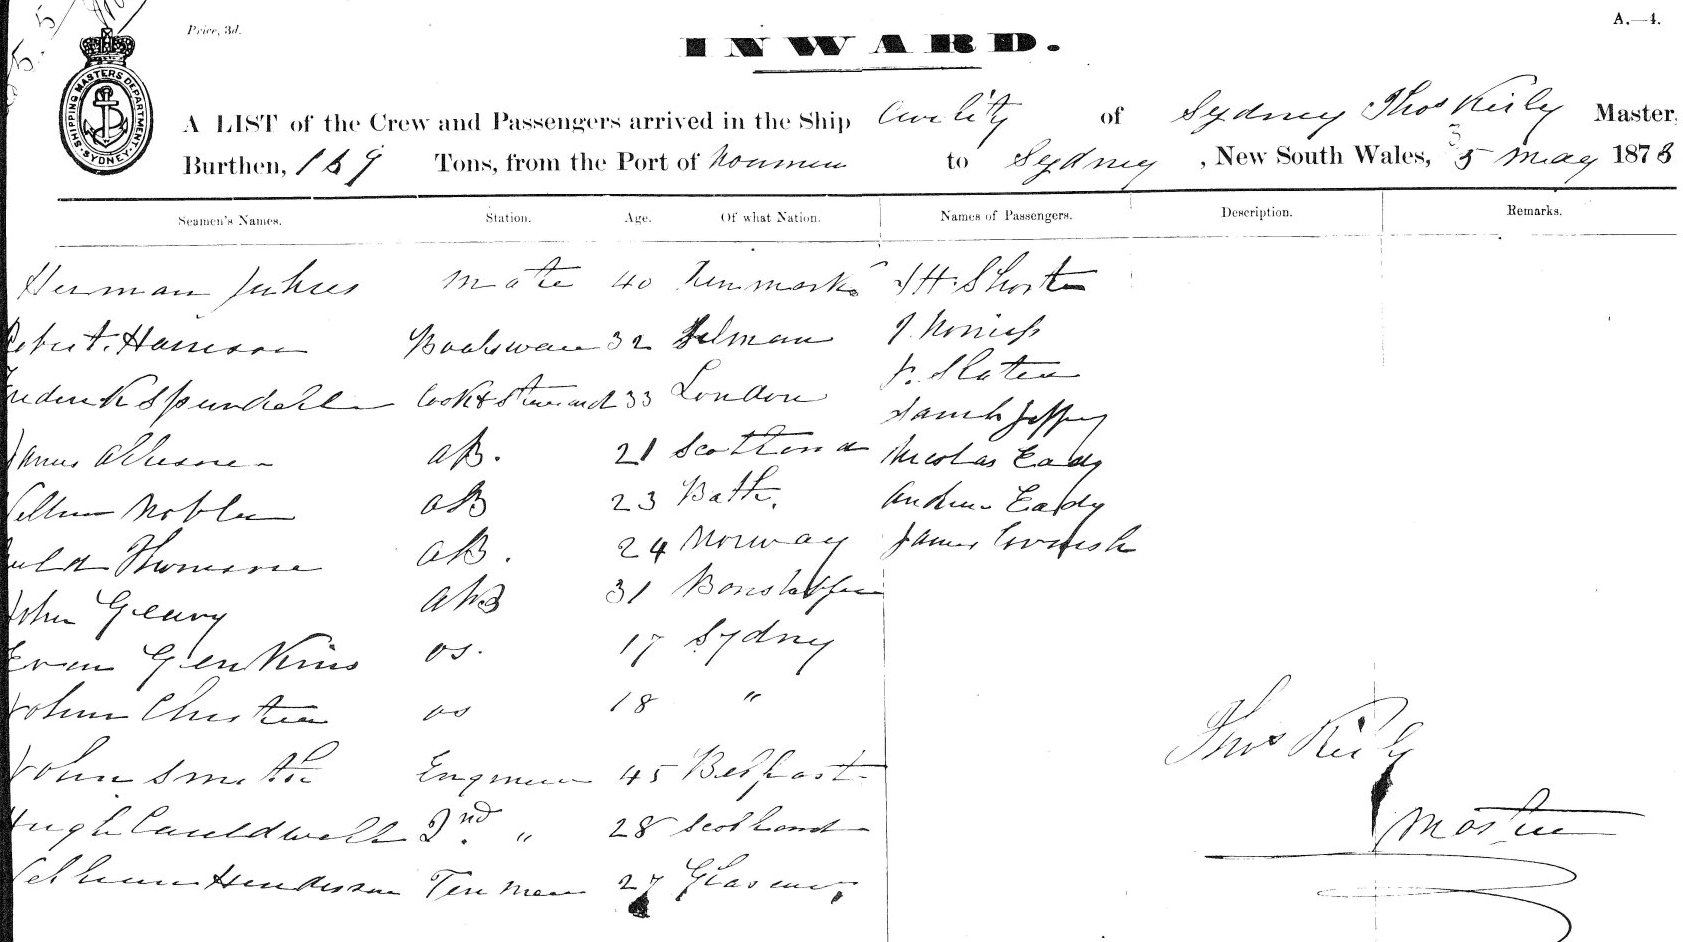 Price, 3d.
A.—4.
INWARD.
SHIPPING MASTERS DEPARTMENT. SYDNEY
A LIST of the Crew and Passengers arrived in the Ship of Sydney Thos Master,
Burthen, 169 Tons, from the Port of to Sydney, New South Wales, 5 May 1873
Seamen's Names. Station. Age. Of what Nation. Names of Passengers. Description. Remarks.
Herman mate 40 Denmark J H. Shorter
Robert. Harrison Boatswain 32 J.
Frederick Cook & Steward 33 London J. Slater
James aB. 21 Scotland Jeffrey
William Noble aB 23 Bath. Nicolas Eady
Thomson aB. 24 Norway Andrew Eady
John Geary aB 31 James Cornish
Evan Genkins os. 17 Sydney
John Christian os 18 "
John Smith Engineer 45 Belfast
Hugh Cauldwell 2nd. " 28 Scotland
William Henderson 27 Glasgow
Thos
Master